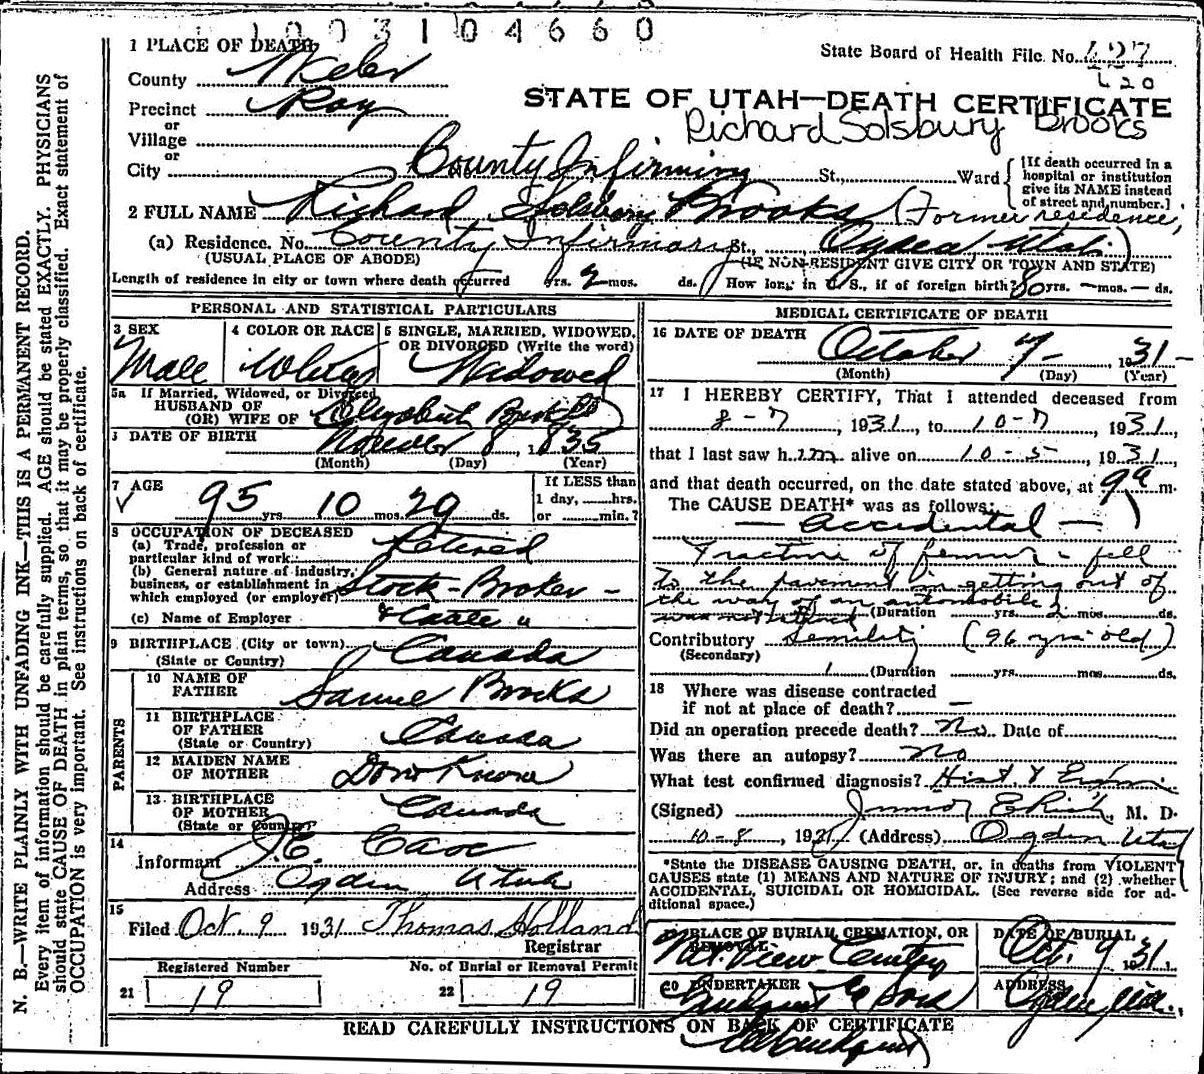 1003104660
1 PLACE OF DEATH
State Board of Health File No. 427
620
County Weber
Precinct Roy
STATE OF UTAH—DEATH CERTIFICATE
Richard Solsbury Brooks
or
Village
or
City County Infirmiry St., Ward
[If death occurred in a hospital or institution give its NAME instead of street and number.]
2 FULL NAME Richard Solsbury Brooks (Former residence,
(a) Residence. No. County Infirmary St., Ogden Utah)
(USUAL PLACE OF ABODE) (IF NON-RESIDENT GIVE CITY OR TOWN AND STATE)
Length of residence in city or town where death occurred yrs. 2 mos. ds. How long in U. S., if of foreign birth? 80 yrs. — mos. — ds.
PERSONAL AND STATISTICAL PARTICULARS
3 SEX
Male
4 COLOR OR RACE
White
5 SINGLE, MARRIED, WIDOWED, OR DIVORCED (Write the word)
Widowed
5a If Married, Widowed, or Divorced
HUSBAND OF
(OR) WIFE OF Elizabeth Brooks
DATE OF BIRTH November 8, 1835
(Month) (Day) (Year)
7 AGE
95 yrs. 10 mos. 29 ds.
If LESS than
1 day, hrs.
or min.?
8 OCCUPATION OF DECEASED
(a) Trade, profession or
particular kind of work Retired
(b) General nature of industry,
business, or establishment in
which employed (or employer) Stock-Broker -
(c) Name of Employer
9 BIRTHPLACE (City or town)
(State or Country) Canada
PARENTS
10 NAME OF
FATHER Samuel Brooks
11 BIRTHPLACE
OF FATHER
(State or Country) Canada
12 MAIDEN NAME
OF MOTHER Dont Know
13 BIRTHPLACE
OF MOTHER
(State or Country) Canada
14
Informant J. E.
Address Ogden Utah
15
Filed Oct. 9 1931 Thomas Holland
Registrar
Registered Number
21 19
No. of Burial or Removal Permit
22 19
MEDICAL CERTIFICATE OF DEATH
16 DATE OF DEATH October 7- 1931-
(Month) (Day) (Year)
17 I HEREBY CERTIFY, That I attended deceased from
8-7, 1931, to 10-7, 1931,
that I last saw him alive on 10-5-, 1931
and that death occurred, on the date stated above, at 9a m.
The CAUSE DEATH* was as follows:
— Accidental —
Fracture of femur - fell
to the pavement in getting out of
the way of an automobile
(Duration yrs. 2 mos. ds.
Contributory Senility (96 yrs old)
(Secondary)
(Duration yrs. mos. ds.
18 Where was disease contracted
if not at place of death? —
Did an operation precede death? No. Date of
Was there an autopsy? No
What test confirmed diagnosis? Hist &
(Signed) M. D.
10-8, 1931 (Address) Ogden Utah
*State the DISEASE CAUSING DEATH, or, in deaths from VIOLENT
CAUSES state (1) MEANS AND NATURE OF INJURY; and (2) whether
ACCIDENTAL, SUICIDAL OR HOMICIDAL. (See reverse side for ad-
ditional space.)
PLACE OF BURIAL, CREMATION, OR
REMOVAL
Mt. View Cemetery
DATE OF BURIAL
Oct. 9 1931
20 UNDERTAKER
Lindquist & Sons
ADDRESS
Ogden, Utah.
READ CAREFULLY INSTRUCTIONS ON BACK OF CERTIFICATE
N. B.—WRITE PLAINLY WITH UNFADING INK—THIS IS A PERMANENT RECORD.
Every item of information should be carefully supplied. AGE should be stated EXACTLY. PHYSICIANS
should state CAUSE OF DEATH in plain terms, so that it may be properly classified. Exact statement of
OCCUPATION is very important. See instructions on back of certificate.